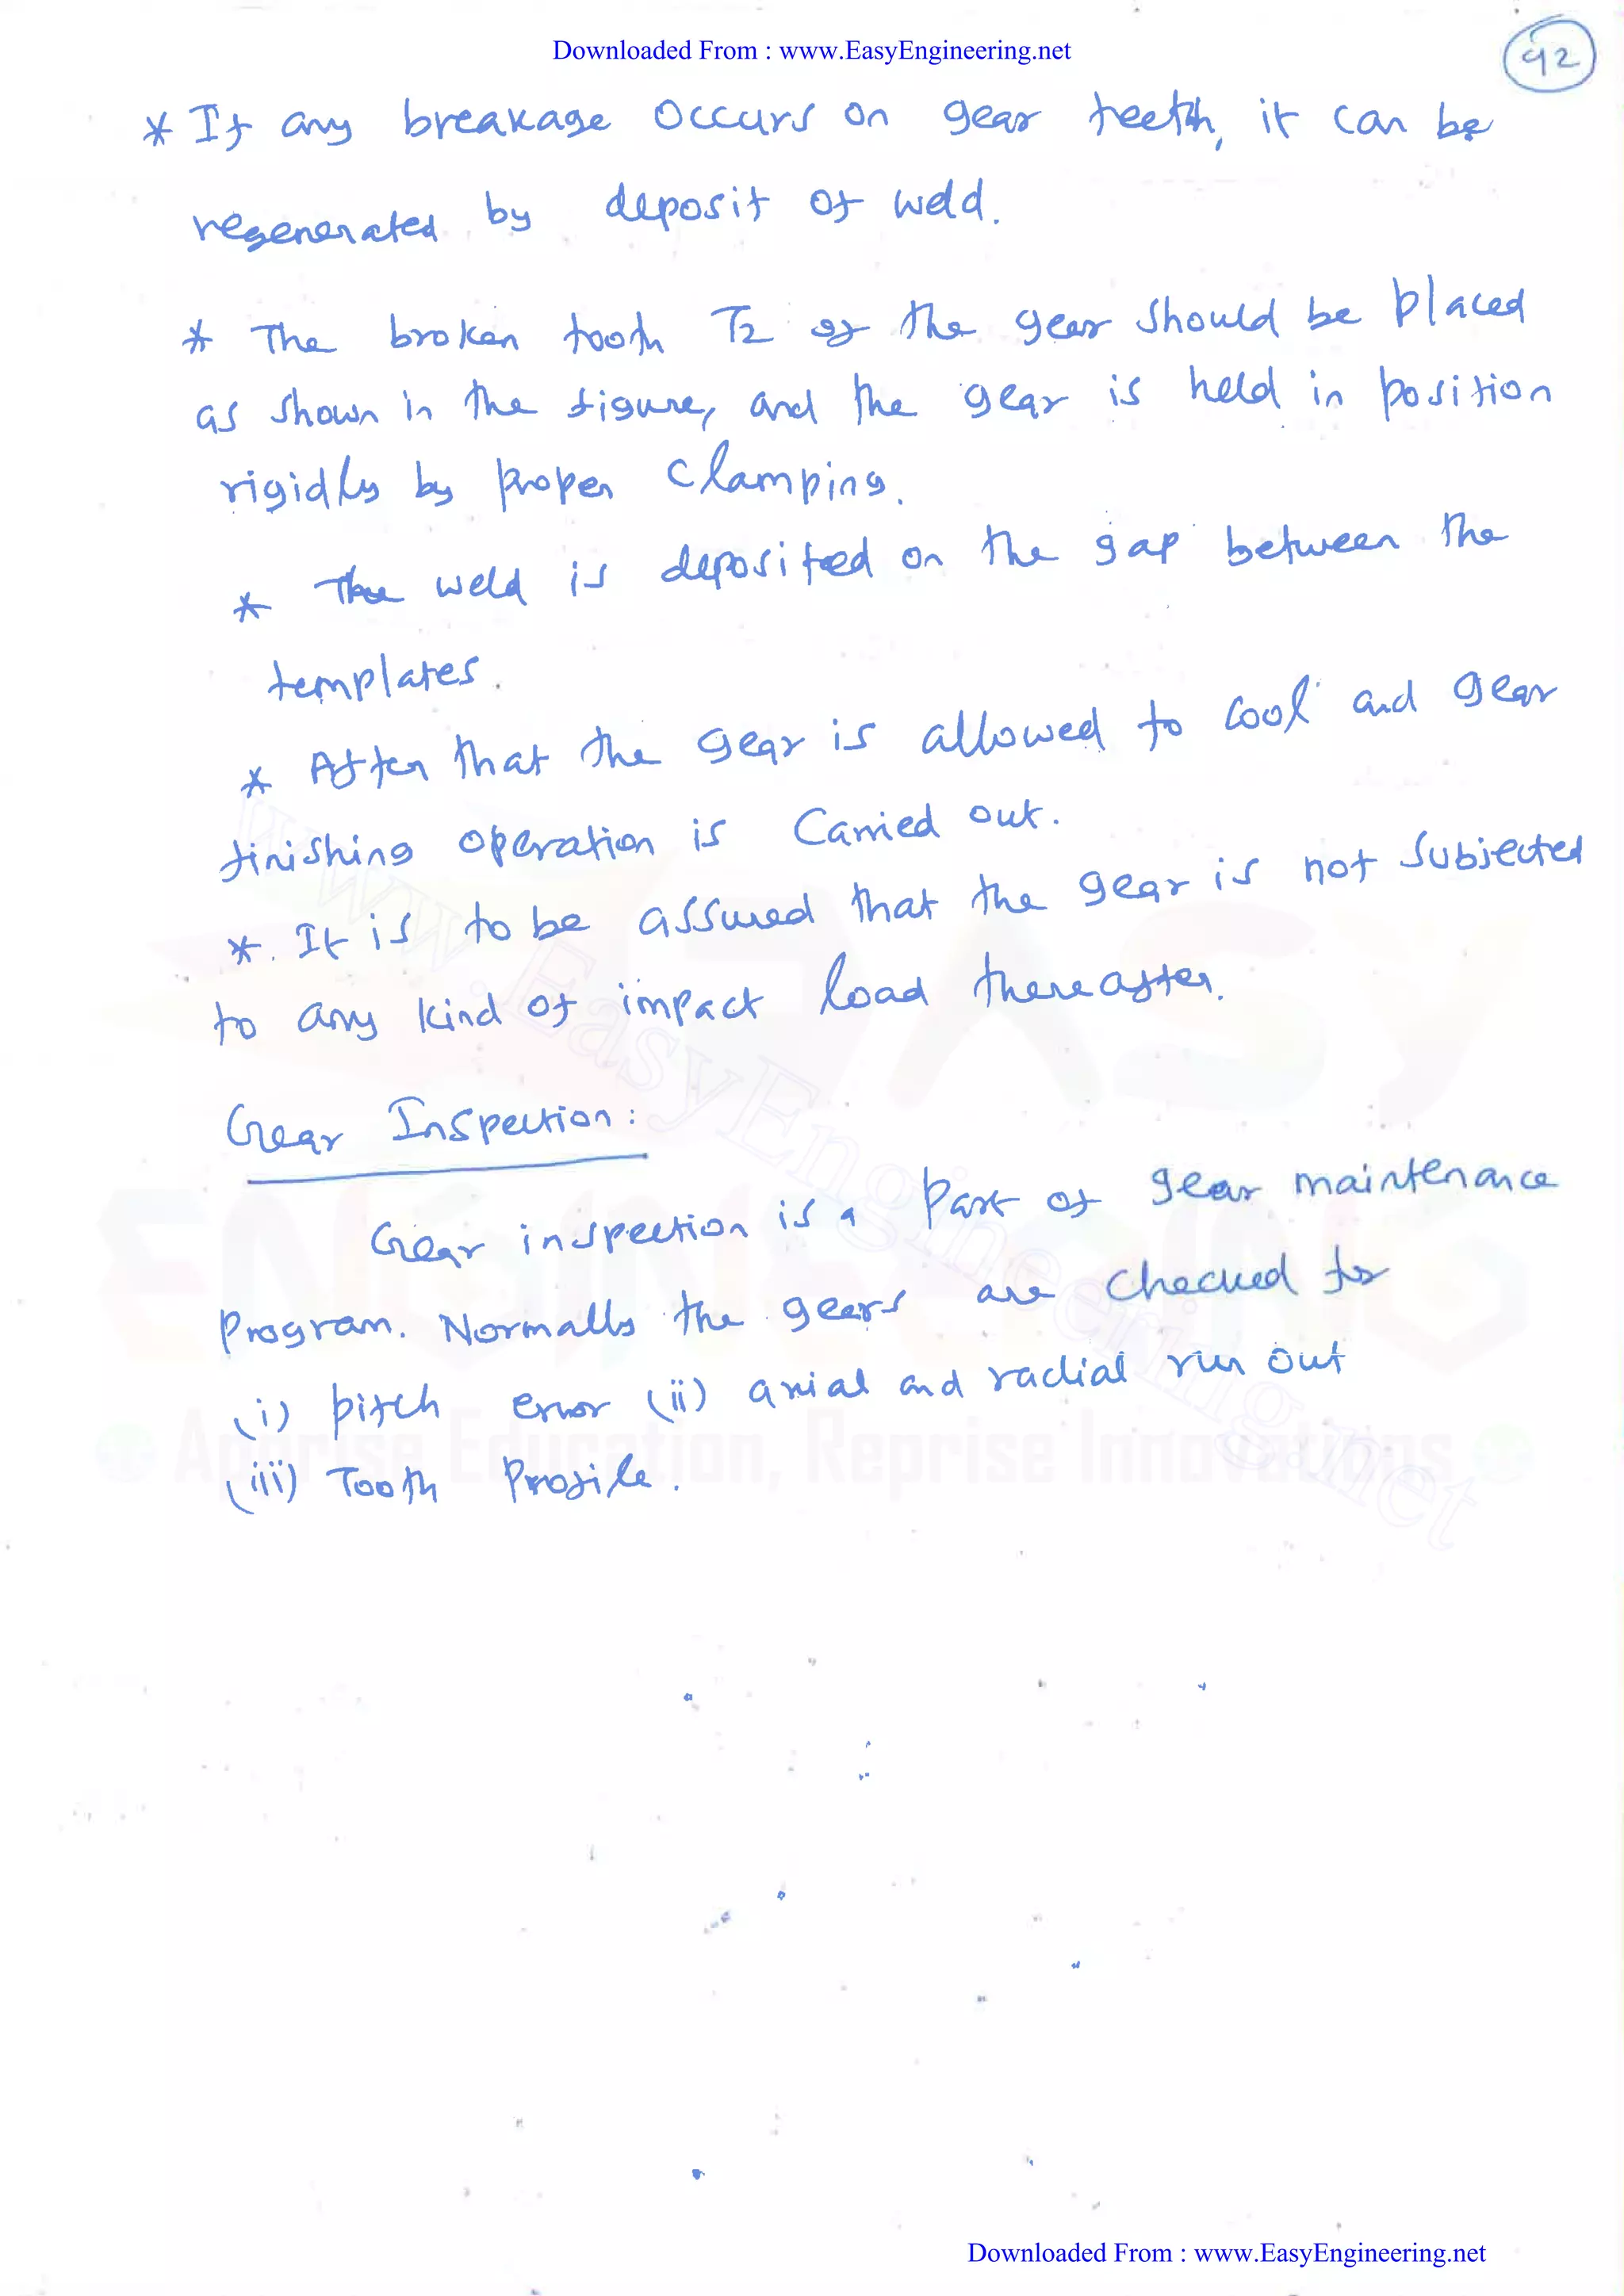 Downloaded From : www.EasyEngineering.net
92
* If any breakage occurs on gear teeth, it can be
regenerated by deposit of weld.
* The broken tooth T2 of the gear should be placed
as shown in the figure, and the gear is held in position
rigidly by proper clamping.
* The weld is deposited on the gap between the
templates.
* After that the gear is allowed to cool and gear
finishing operation is carried out.
*. It is to be assured that the gear is not subjected
to any kind of impact load thereafter.
Gear Inspection:
Gear inspection is a part of gear maintenance
program. Normally the gears are checked for
(i) pitch error (ii) axial and radial run out
(iii) Tooth profile.
www.EasyEngineering.net
EASY
ENGINEERING
Apprise Education, Reprise Innovations
Downloaded From : www.EasyEngineering.net